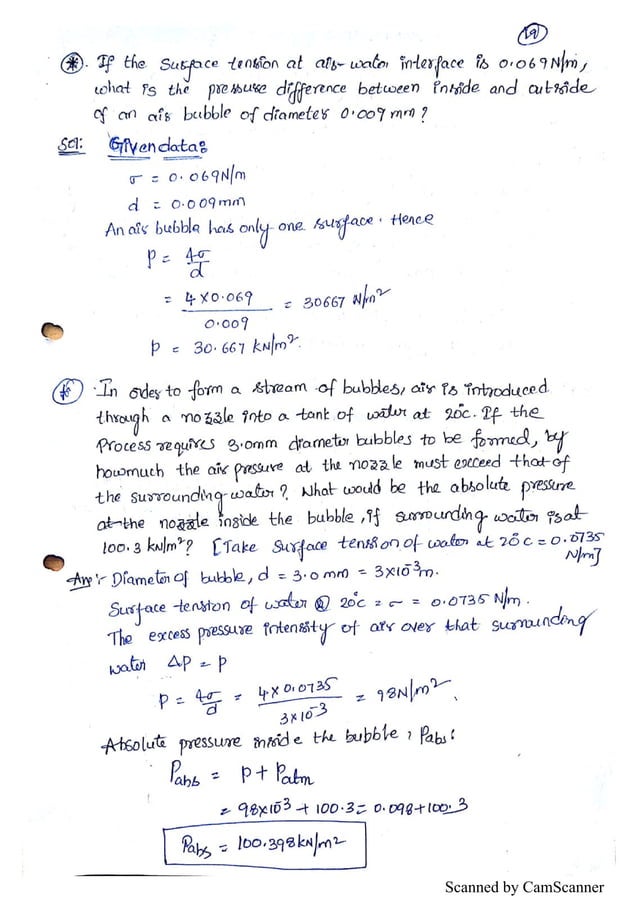 19
* If the surface tension at air-water interface is 0.069 N/m,
what is the pressure difference between inside and outside
of an air bubble of diameter 0.009 mm?
Sol: Given data:
σ = 0.069 N/m
d = 0.009 mm
An air bubble has only one surface. Hence
P = 4σ/d
= 4 X 0.069 / 0.009 = 30667 N/m²
P = 30.667 kN/m².
* In order to form a stream of bubbles, air is introduced
through a nozzle into a tank of water at 20°c. If the
Process requires 3.0mm diameter bubbles to be formed, by
howmuch the air pressure at the nozzle must exceed that of
the surrounding water? What would be the absolute pressure
at the nozzle inside the bubble, if surrounding water is at
100.3 kN/m²? [Take Surface tension of water at 20°c = 0.0735
N/m]
Ans:- Diameter of bubble, d = 3.0 mm = 3x10⁻³ m.
Surface tension of water @ 20°c = σ = 0.0735 N/m.
The excess pressure intensity of air over that surrounding
water ΔP = P
P = 4σ/d = 4 x 0.0735 / 3x10⁻³ = 98 N/m².
Absolute pressure inside the bubble, Pabs:
Pabs = P + Patm
= 98x10⁻³ + 100.3 = 0.098 + 100.3
Pabs = 100.398 kN/m2
Scanned by CamScanner